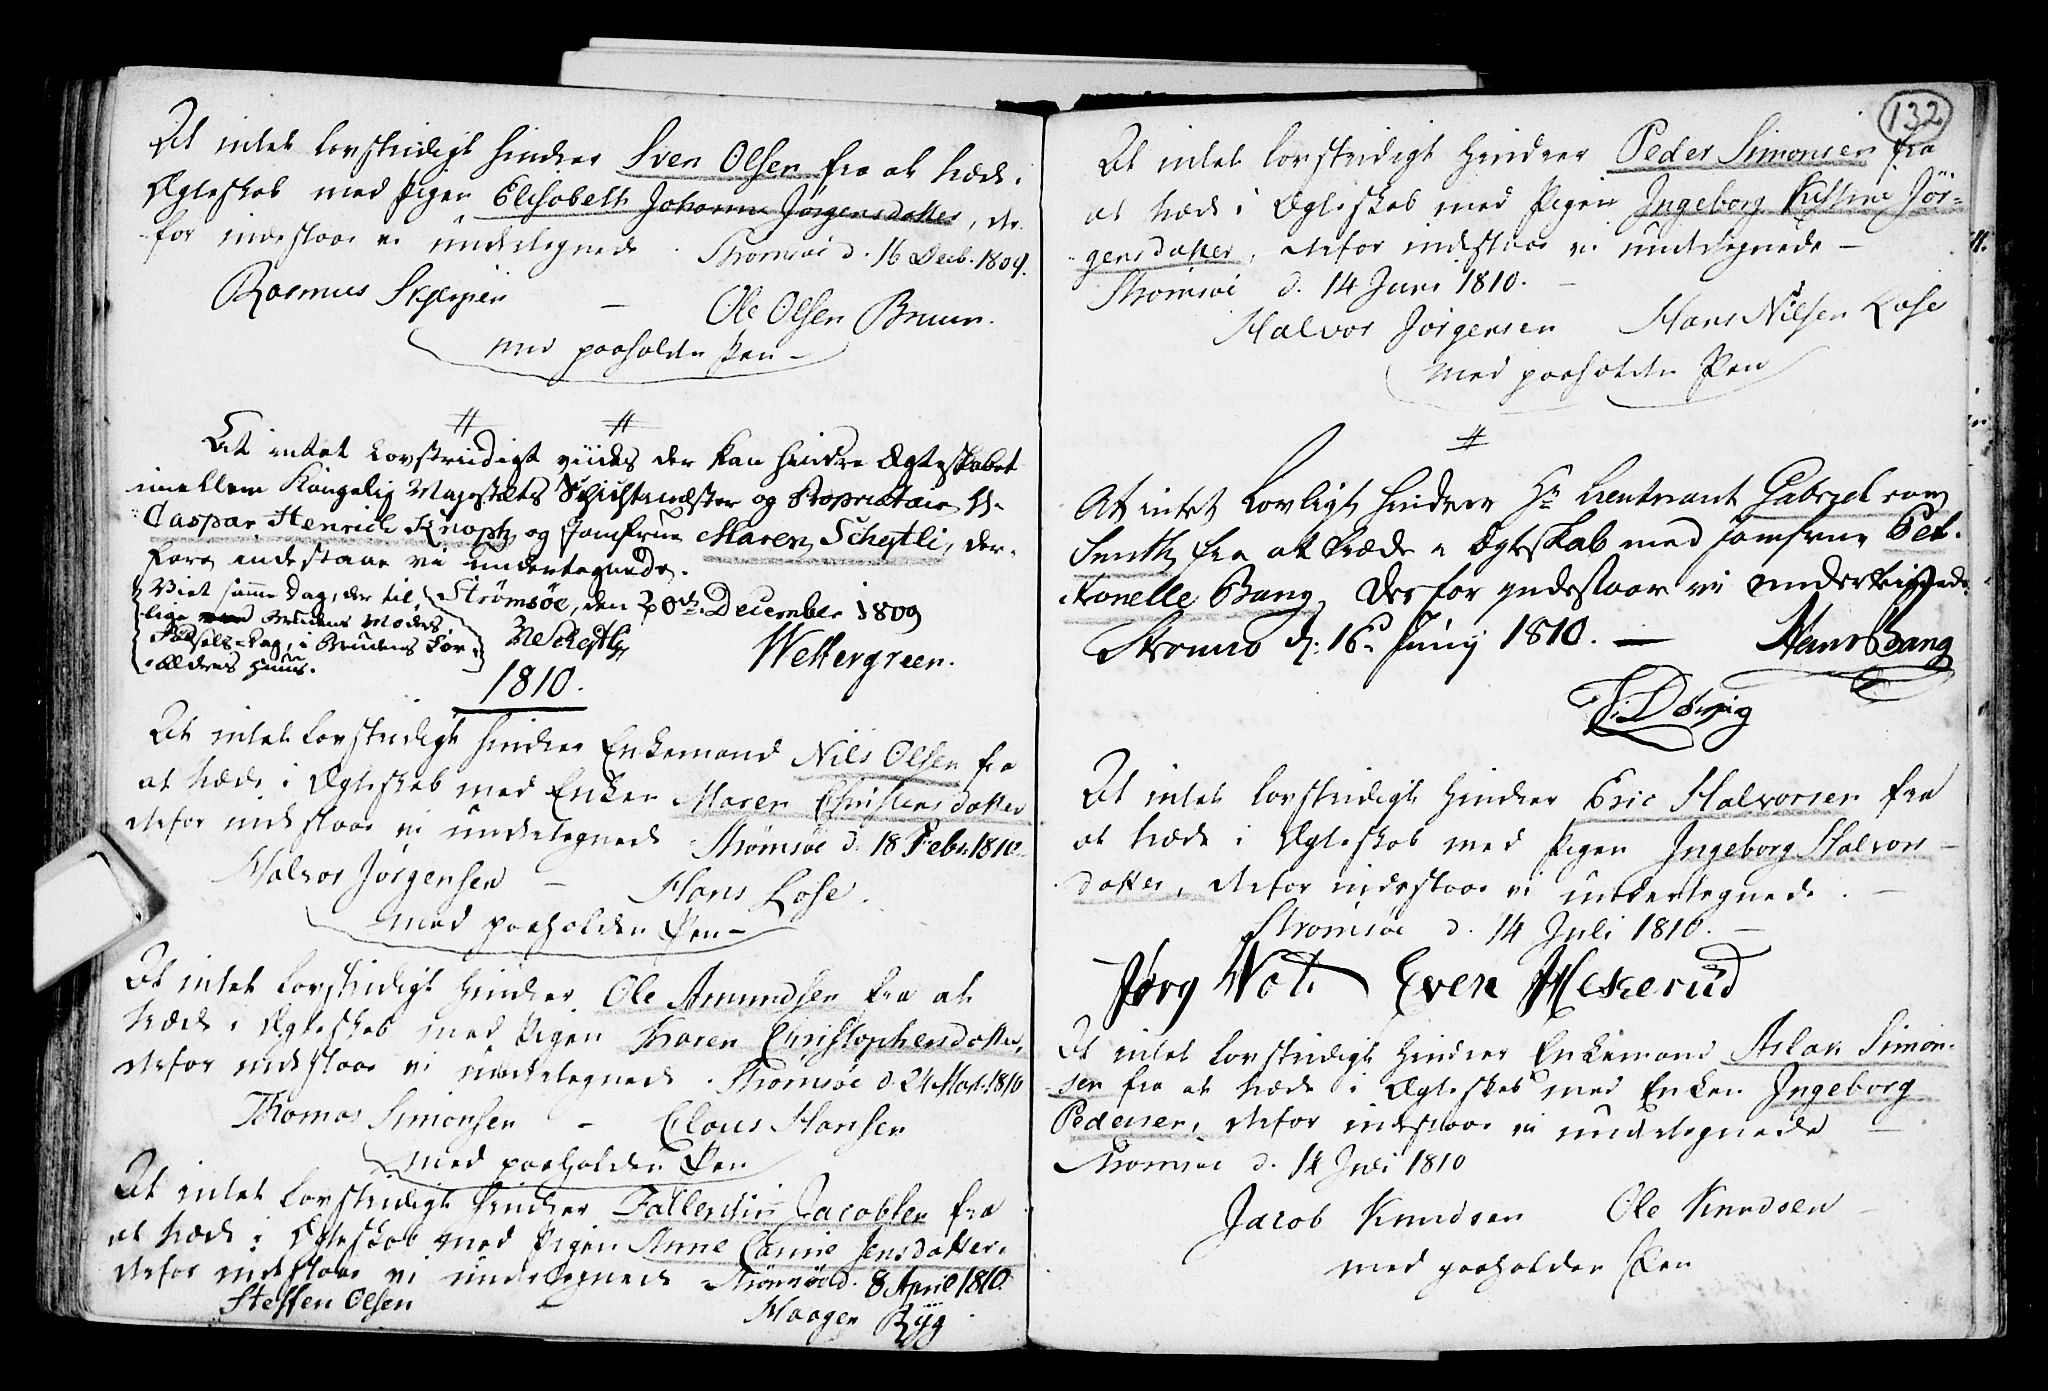 At intet lovstridigt hindrer Sven Olsen fra at træde i
Ægteskab med Pigen Elisabeth Johanne Jørgensdatter, der-
for indestaae vi undertegnede. Strømsøe d. 16 Decb. 1809.
Rasmus – Ole Olsen Bruun.
med paaholden Pen –
At intet Lovstridigt viides der kan hindre Ægteskabet
imellem Kongelig Majestæts Schichtmester og Proprietair Hr.
Caspar Henrich Knoph og Jomfrue Maren Schejtli, der-
fore indestaae vi undertegnede.
Strømsøe, den 20de December 1809
Viet samme Dag, der til
lige med Brudens Moders
Fødsels-Dag, i Brudens For-
ældres Huus.
Schejtli Wettergreen.
1810.
At intet lovstridigt hindrer Enkemand Nils Olsen fra
at træde i Ægteskab med Enken Maren Christensdatter
derfor indestaae vi undertegnede Strømsøe d. 18 Febr. 1810.
Halvor Jørgensen – Hans Lose.
med paaholden Pen –
At intet lovstridigt hindrer Ole Amundsen fra at
træde i Ægteskab med Pigen Karen Christophersdatter,
derfor indestaae vi undertegnede. Strømsøe d. 24 Mart. 1810
Thomas Simonsen – Claus Hansen
med paaholden Pen
At intet lovstridigt hindrer Fallentin Jacobsen fra
at træde i Ægteskab med Pigen Anne Carine Jensdatter,
derfor indestaae vi undertegnede Strømsøe d. 8 April 1810.
Steffen Olsen Haagen Ryg
132
At intet lovstridigt hindrer Peder Simonsen fra
at træde i Ægteskab med Pigen Ingeborg Kistine Jør-
gensdatter, derfor indestaae vi undertegnede –
Strømsøe d. 14 Juni 1810. –
Halvor Jørgensen Hans Nilsen Lose
med paaholden Pen
At intet Lovligt hindrer Hr Lieutenant Gabriel
Smith fra at træde i Ægteskab med Jomfrue Pet-
ronelle Bang, derfor indestaar vi undertegnede.
Stromsø d: 16d Junij 1810. — Hans Bang
At intet lovstridigt hindrer Eric Halvorsen fra
at træde i Ægteskab med Pigen Ingeborg Halvors-
datter, derfor indestaae vi undertegnede. –
Strømsøe d. 14 Juli 1810. –
Jørg Even
At intet lovstridigt hindrer Enkemand Aslak Simon-
sen fra at træde i Ægteskab med Enken Ingeborg
Pedersen, derfor indestaae vi undertegnede –
Strømsøe d. 14 Juli 1810
Jacob Knudsen Ole Knudsen –
med paaholden Pen